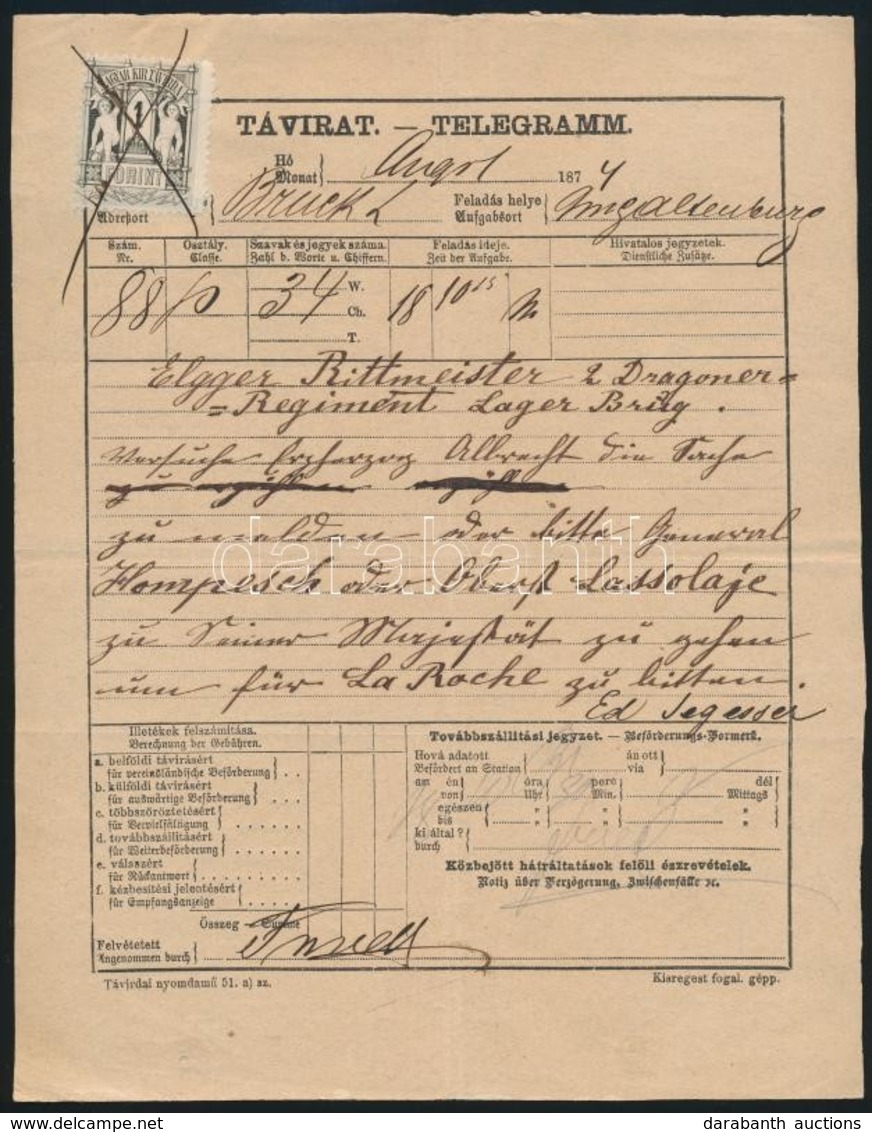 MAGYAR KIR. TÁVIRDA
1
FORINT
TÁVIRAT. — TELEGRAMM.
Hó
Monat
August
1874
Adreßort
Bruck L
Feladás helye
Aufgabsort
Ungaltenburg
Szám.
Nr.
Osztály.
Classe.
Szavak és jegyek száma.
Zahl d. Worte u. Chiffern.
Feladás ideje.
Zeit der Aufgabe.
Hivatalos jegyzetek.
Dienstliche Zusätze.
88 p 34 W. 18 10 15
Ch.
T.
Elgger Rittmeister 2 Dragoner=
=Regiment Lager Brúg.
Versuche Erzherzog Albrecht die Sache
zu melden oder bitte General
Hompesch oder Oberst Lassolaje
zu Seiner Majestät zu gehen
um für La Roche zu bitten.
Ed Segesser
darabanth
Illetékek felszámítása.
Berechnung der Gebühren.
a. belföldi távirásért
für vereinsländische Beförderung
b. külföldi távirásért
für auswärtige Beförderung
c. többszöröztetésért
für Vervielfältigung
d. továbbszállitásért
für Weiterbeförderung
e. válaszért
für Rückantwort
f. kézbesitési jelentésért
für Empfangsanzeige
Összeg — Summe
Felvétetett
Angenommen durch
Továbbszállitási jegyzet. — Beförderungs-Vormerk.
Hová adatott
Befördert an Station
án ott
via
am én
von
óra
Uhr
perc
Min.
dél
Mittags
egészen
bis
" " "
ki által?
durch
Közbejött hátráltatások felöli észrevételek.
Notiz über Verzögerung, Zwischenfälle ꝛc.
Távirdai nyomdamű 51. a) sz.
Kisregest fogal. gépp.
darabanth auctions